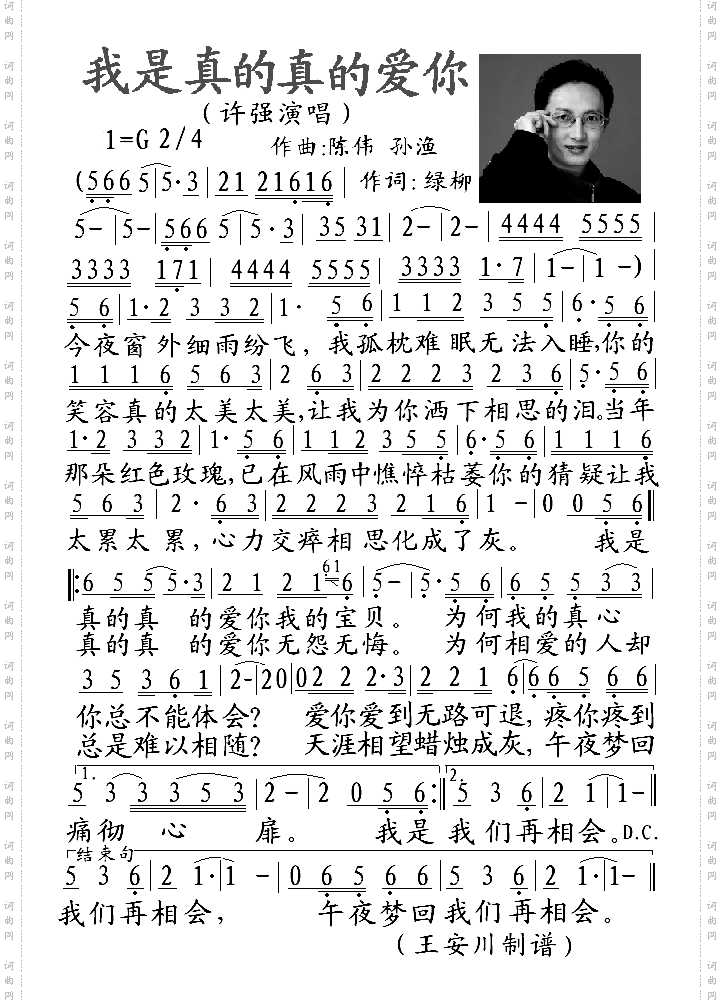 我是真的真的爱你
(许强演唱)
1=G 2/4
作曲:陈伟 孙渔
(566 5 | 5·3 | 21 21616 | 作词:绿柳
5- | 5- | 566 5 | 5·3 | 35 31 | 2- | 2- | 4444 5555 |
3333 171 | 4444 5555 | 3333 1·7 | 1- | 1 -)
5 6 | 1·2 3 3 2 | 1· 5 6 | 1 1 2 3 5 5 | 6·5 6 |
今夜窗外细雨纷飞, 我孤枕难眠无法入睡,你的
1 1 1 6 5 6 3 | 2 6 3 | 2 2 2 3 2 3 6 | 5·5 6 |
笑容真的太美太美,让我为你洒下相思的泪。当年
1·2 3 3 2 | 1·5 6 | 1 1 2 3 5 5 | 6·5 6 | 1 1 1 6
那朵红色玫瑰,已在风雨中憔悴枯萎你的猜疑让我
5 6 3 | 2· 6 3 | 2 2 2 3 2 1 6 | 1 - | 0 0 5 6 ‖
太累太累, 心力交瘁相思化成了灰。 我是
‖: 6 5 5 5·3 | 2 1 2 1 61 6 | 5- | 5·5 6 | 6 5 5 3 3 |
真的真 的爱你我的宝贝。 为何我的真心
真的真 的爱你无怨无悔。 为何相爱的人却
3 5 3 6 1 | 2- | 2 0 | 0 2 2 2·3 | 2 2 1 6 | 6 6 5 6 6 |
你总不能体会? 爱你爱到无路可退, 疼你疼到
总是难以相随? 天涯相望蜡烛成灰, 午夜梦回
1.
2.
5 3 3 3 5 3 | 2- | 2 0 5 6 :‖ 5 3 6 | 2 1 | 1- ‖
痛彻 心 扉。 我是 我们再相会。D.C.
结束句
5 3 6 | 2 1· | 1 - | 0 6 5 6 6 | 5 3 6 | 2 1· | 1 - ‖
我们再相会, 午夜梦回我们再相会。
(王安川制谱)
词曲网